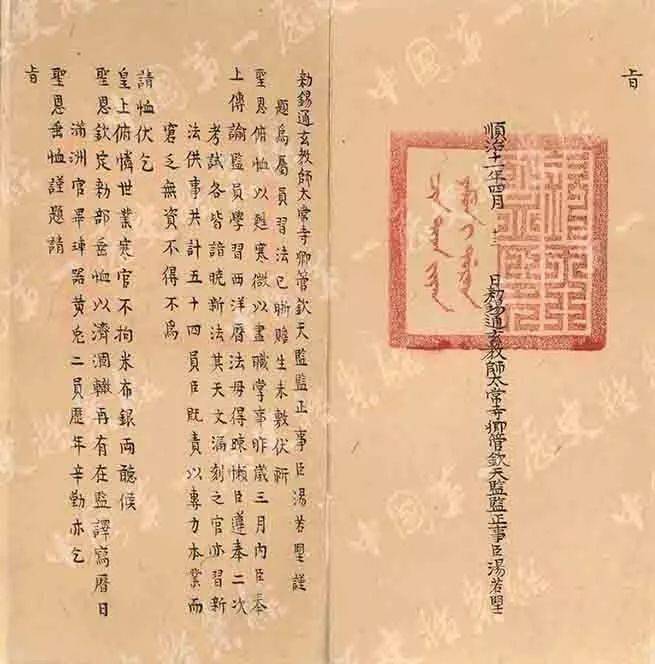 旨
順治十一年四月 日勅錫通玄教師太常寺卿管欽天監監正事臣湯若望
勅錫通玄教師太常寺卿管欽天監監正事臣湯若望謹
題為屬員習法已勤贍生未敷伏祈
聖恩俯恤以慰寒微以盡職掌事昨歲三月內臣奉
上傳諭監員學習西洋曆法毋得疎懶臣遵奉二次
考試各皆諳曉新法其天文漏刻之官亦習新
法供事共計五十四員臣既責以專力本業而
窘乏無資不得不為
請恤伏乞
皇上俯憐世業寒官不拘米布銀兩聽候
聖恩欽定勅部垂恤以濟涸轍再有在監譯寫曆日
滿洲官畢 器黃 二員歷年辛勤亦乞
聖恩垂恤謹題請
旨